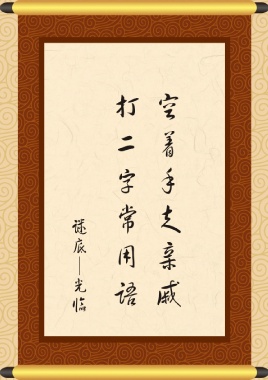 空着手走亲戚
打二字常用语
谜底——光临